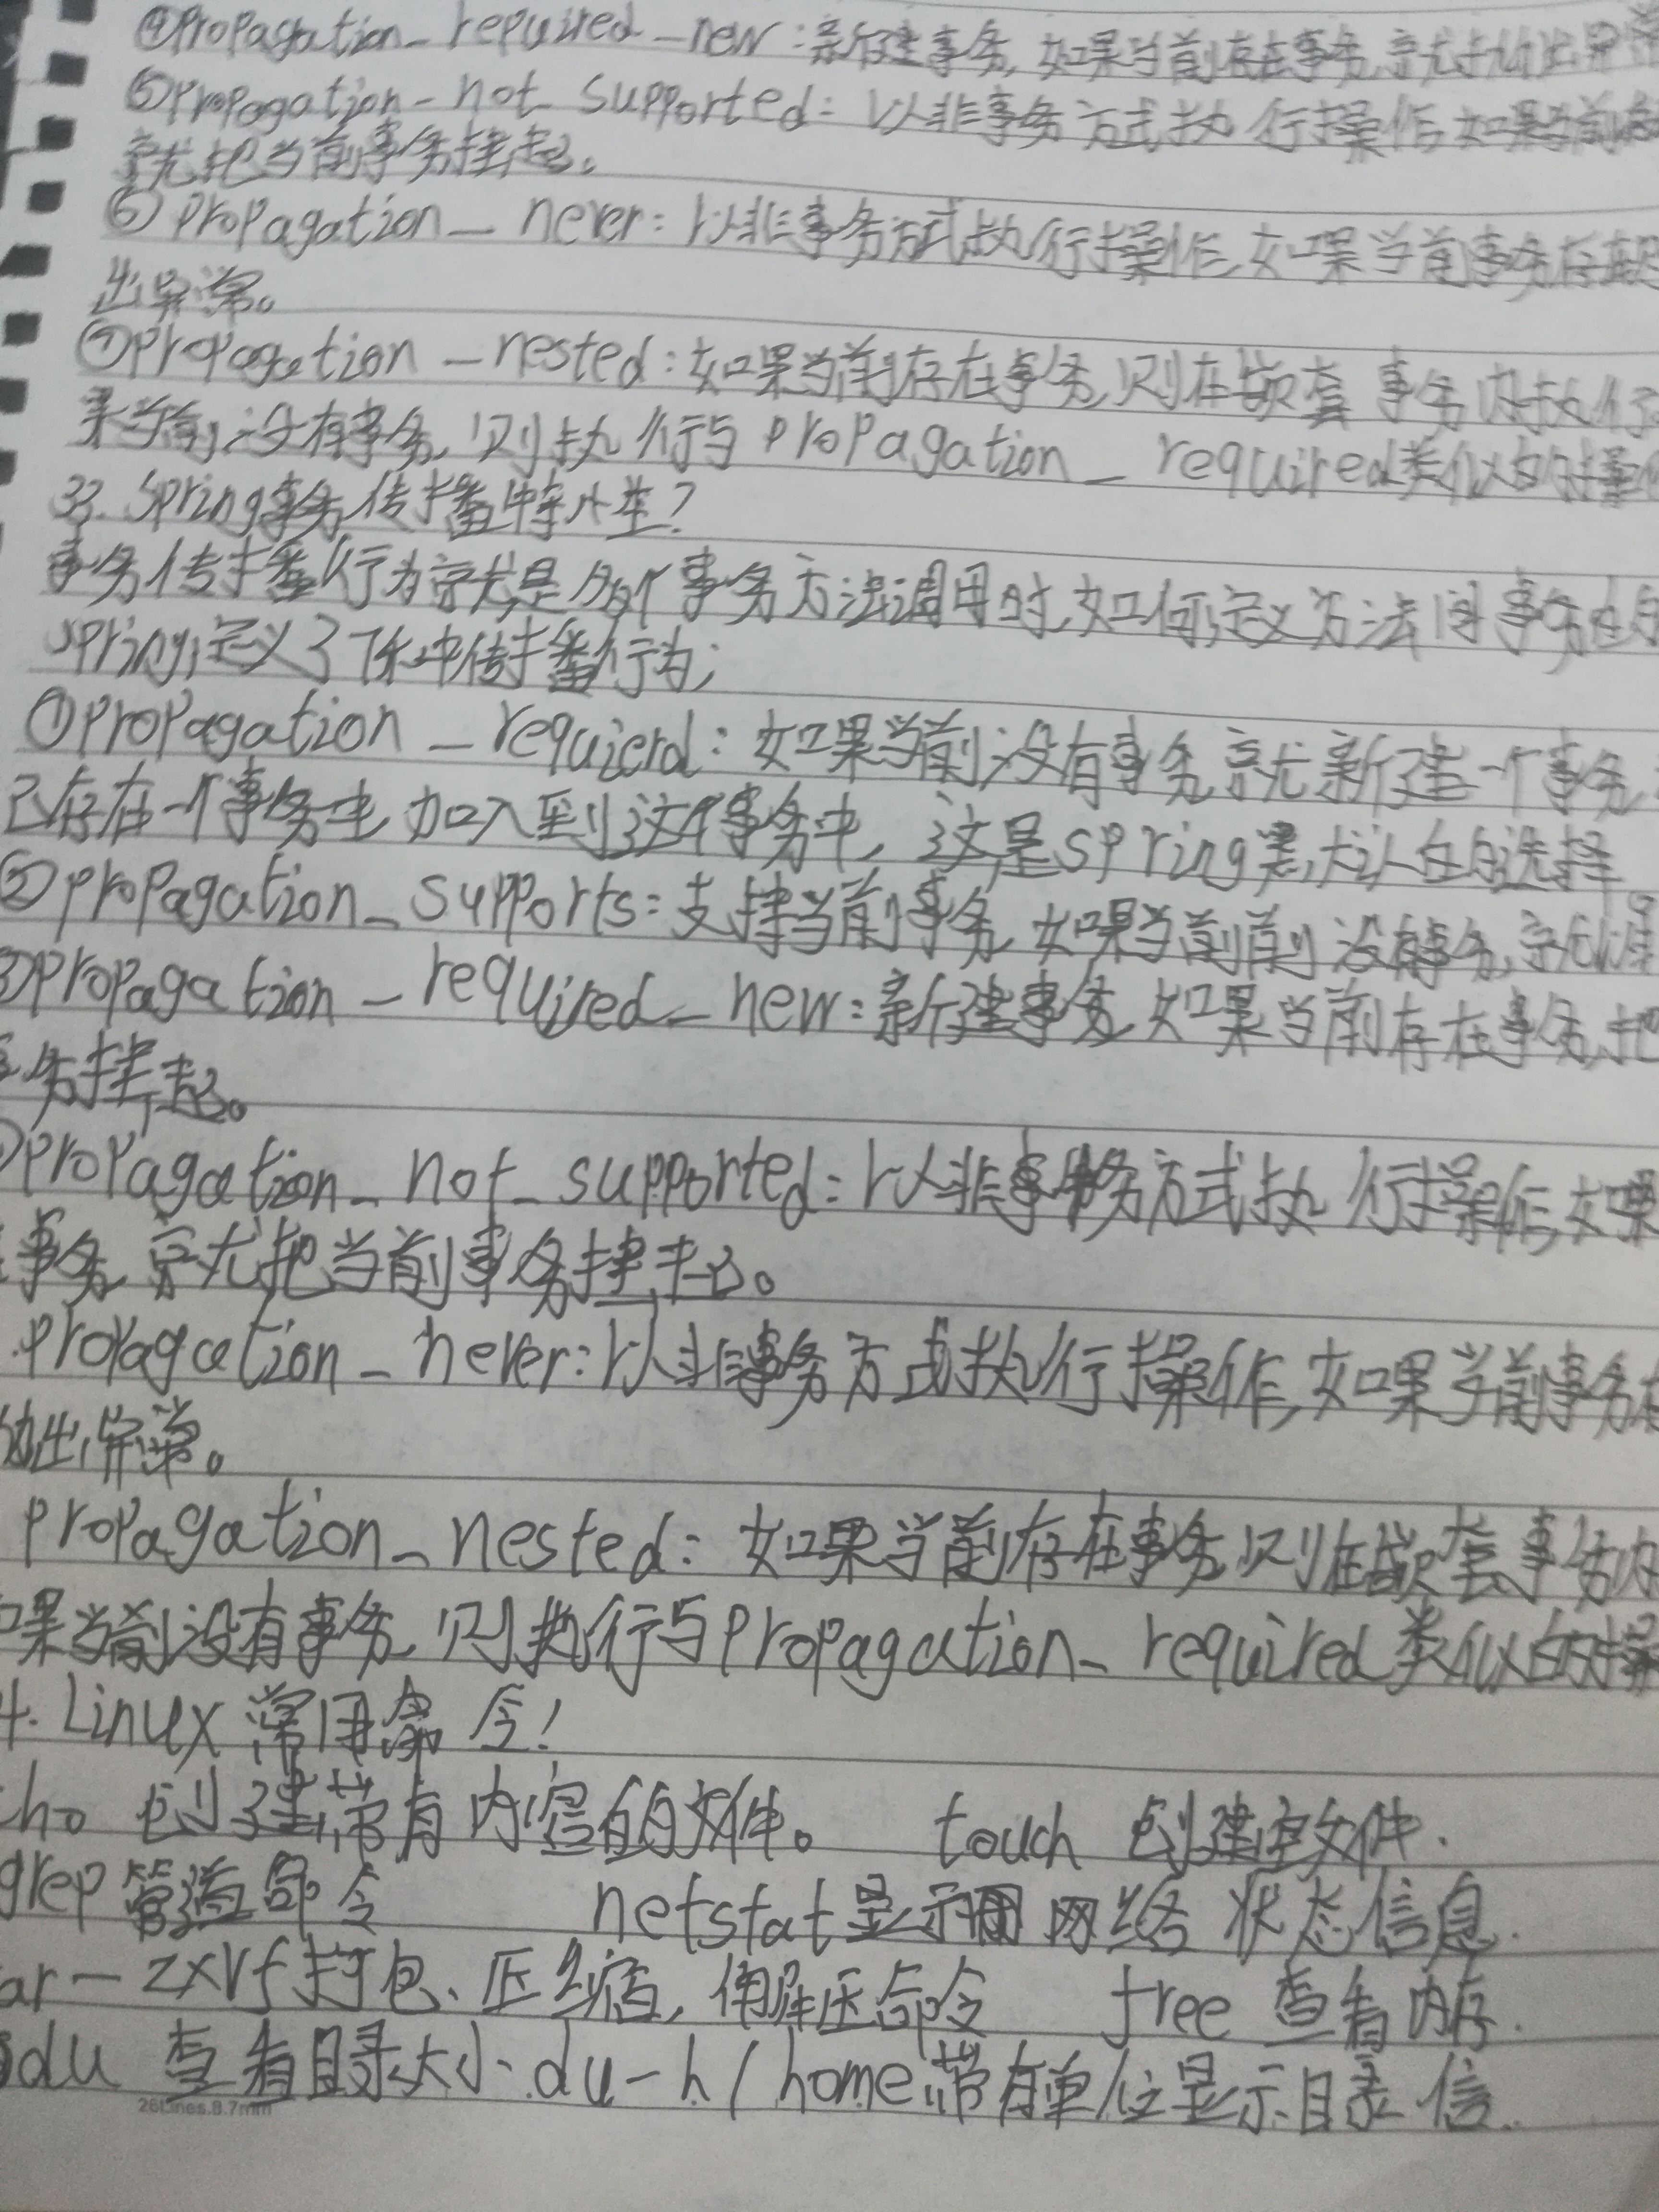 ④Propagation_repuired_new:新建事务,如果当前存在事务,就抛出异常
⑤Propagation_not_supported:以非事务方式执行操作,如果当前
就把当前事务挂起。
⑥Propagation_never:以非事务方式执行操作,如果当前事务存在
出异常。
⑦Propagation_nested:如果当前存在事务,则在嵌套事务内执行
果当前没有事务,则执行与Propagation_required类似的操作
33.Spring事务传播特性?
事务传播行为就是多个事务方法调用时,如何定义方法间事务
Spring定义了7种传播行为;
①Propagation_requierd:如果当前没有事务,就新建一个事务,
已存在一个事务中,加入到这个事务中,这是Spring默认的选择。
②Propagation_supports:支持当前事务,如果当前前没有事务,就
③Propagation_required_new:新建事务,如果当前存在事务,把
务挂起。
Propagation_not_supported:以非事务方式执行操作,如果
事务,就把当前事务挂起。
Propagation_never:以非事务方式执行操作,如果当前事务
抛出异常。
Propagation_nested:如果当前存在事务,则在嵌套事务内
如果当前没有事务,则执行与Propagation_required类似的操
4.Linux常用命令!
cho 创建带有内容的文件。 touch 创建空文件.
grep 管道命令 netstat 显示网络状态信息.
ar-zxvf打包、压缩,解压命令 free 查看内存.
du 查看目录大小.du-h/home带有单位显示目录信.
26Lines.8.7mm